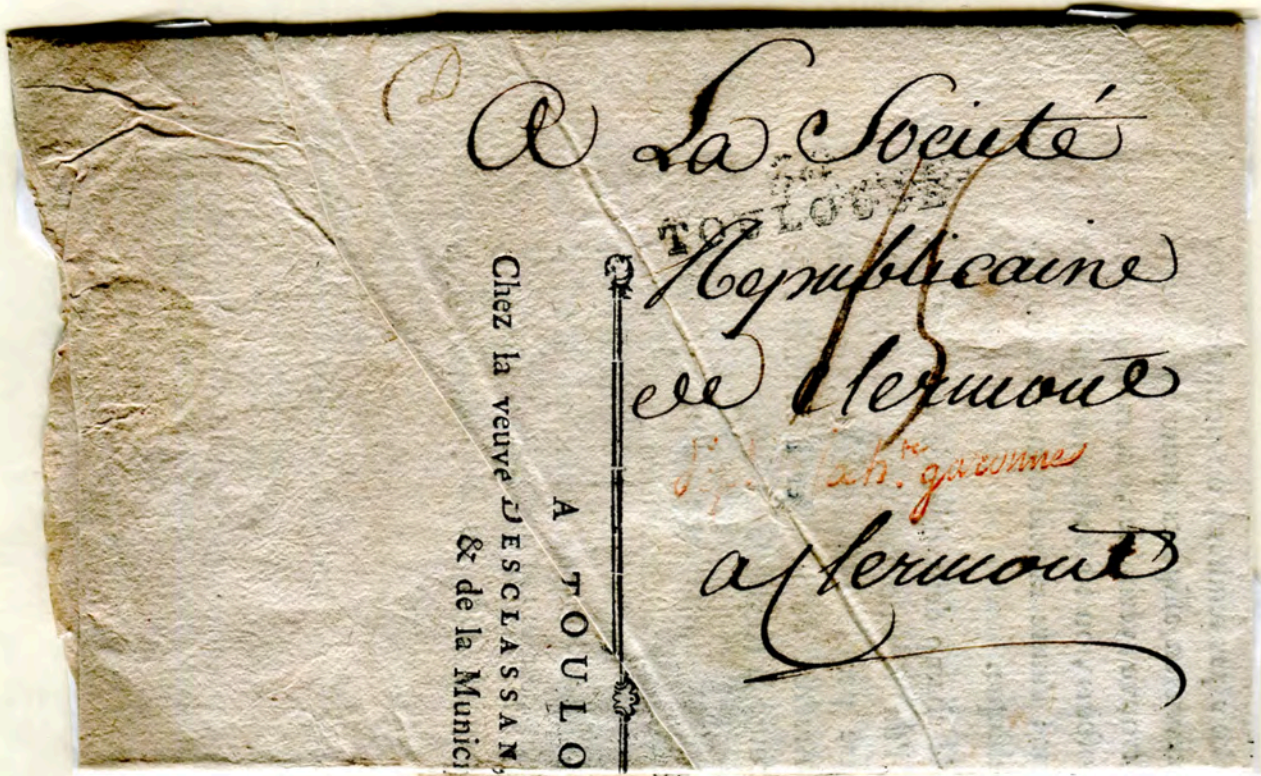 A La Societé
TOULOUSE
Republicaine
de Clermont
15
garonne
a Clermont
A TOULO
Chez la veuve DESCLASSAN,
& de la Munici